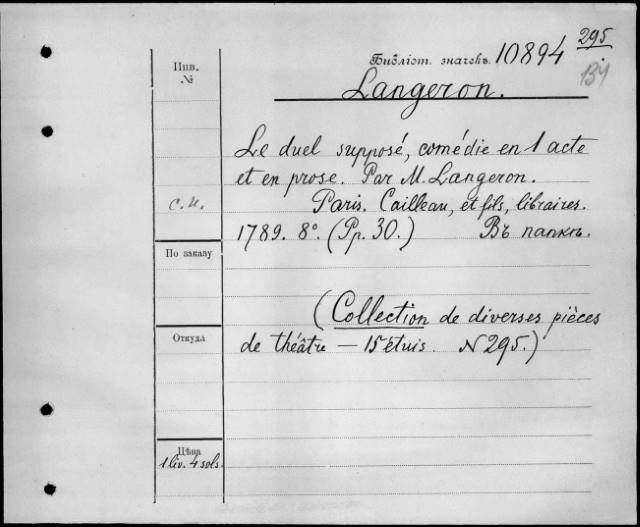 295
Библіот. значекъ 10894
134
Langeron.
Инв.
№
Le duel supposé, comédie en 1 acte
et en prose. Par M. Langeron.
с.н.
Paris. Cailleau, et fils, libraires.
1789. 8°. (Pp. 30.) Въ папкѣ.
По заказу
(Collection de diverses pièces
Откуда
de théâtre — 15 étuis. N 295.)
Цѣна
1 liv. 4 sols.